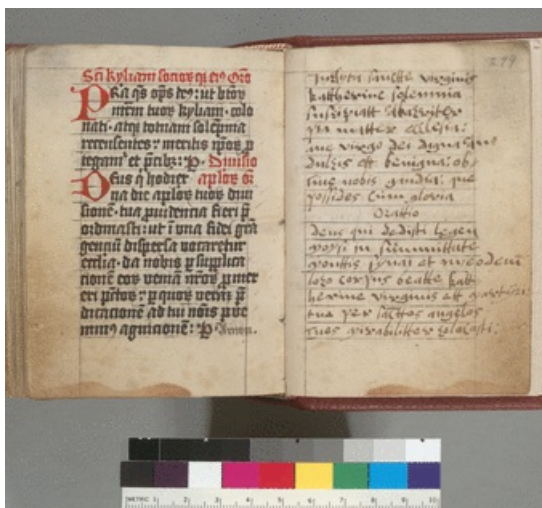 Scti kyliani socioꝝ qꝫ eiꝰ Oro
PRa qs ops deꝰ: ut btoꝝ
tuoꝝ kyliani · colo
nati · atqꝫ totnani solēpnia
recensentes: meritis
tegam̄ et · P · Diuisio
DEus q̄ hodier aplorꝫ oro
na die aplos tuos diui
sione · tua puidencia fieri p
ordinasti: ut i una fidei grā
gencium dispersa vocaretur
ecclīa · da nobis p supplica
tionē eoꝝ veniā nrōꝝ
eri pctōꝝ: p quoꝝ p
dicationē ad tui nōis pue
nimꝰ agnicionē: P Amen.
279
Inclita sanctte virginis
katherine solemnia
suscipiatt alacriter
pia matter ecclesia:
aue virgo dei digna
dulcis ett benigna: ob
tine nobis gaudia: que
possides cum gloria
Orattio
deus qui dedisti legem
moysi in summittate
monttis synai et in eodem
loco corpus beatte katt
herine virginis ett martiris
tue per sancttos angelos
tuos mirabilitter colocasti:
METRIC 1 2 3 4 5 6 7 8 9 10